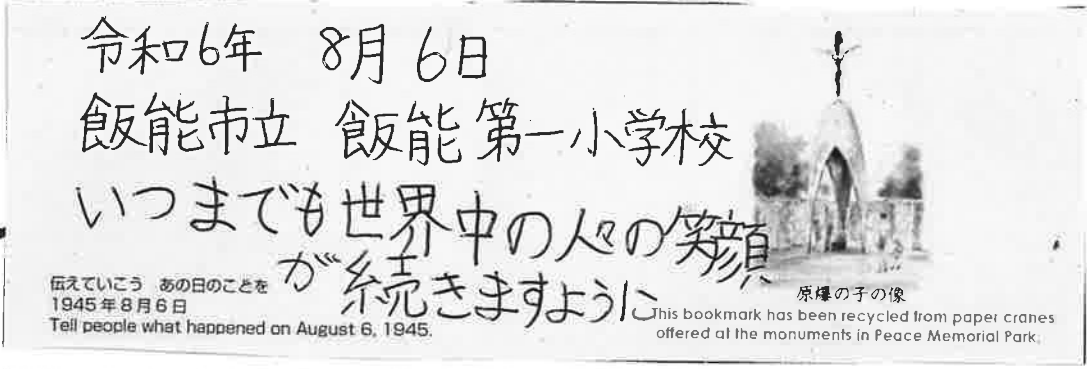 令和6年 8月6日
飯能市立 飯能第一小学校
いつまでも世界中の人々の笑顔
が続きますように
伝えていこう あの日のことを
1945年8月6日
Tell people what happened on August 6, 1945.
原爆の子の像
This bookmark has been recycled from paper cranes
offered at the monuments in Peace Memorial Park.